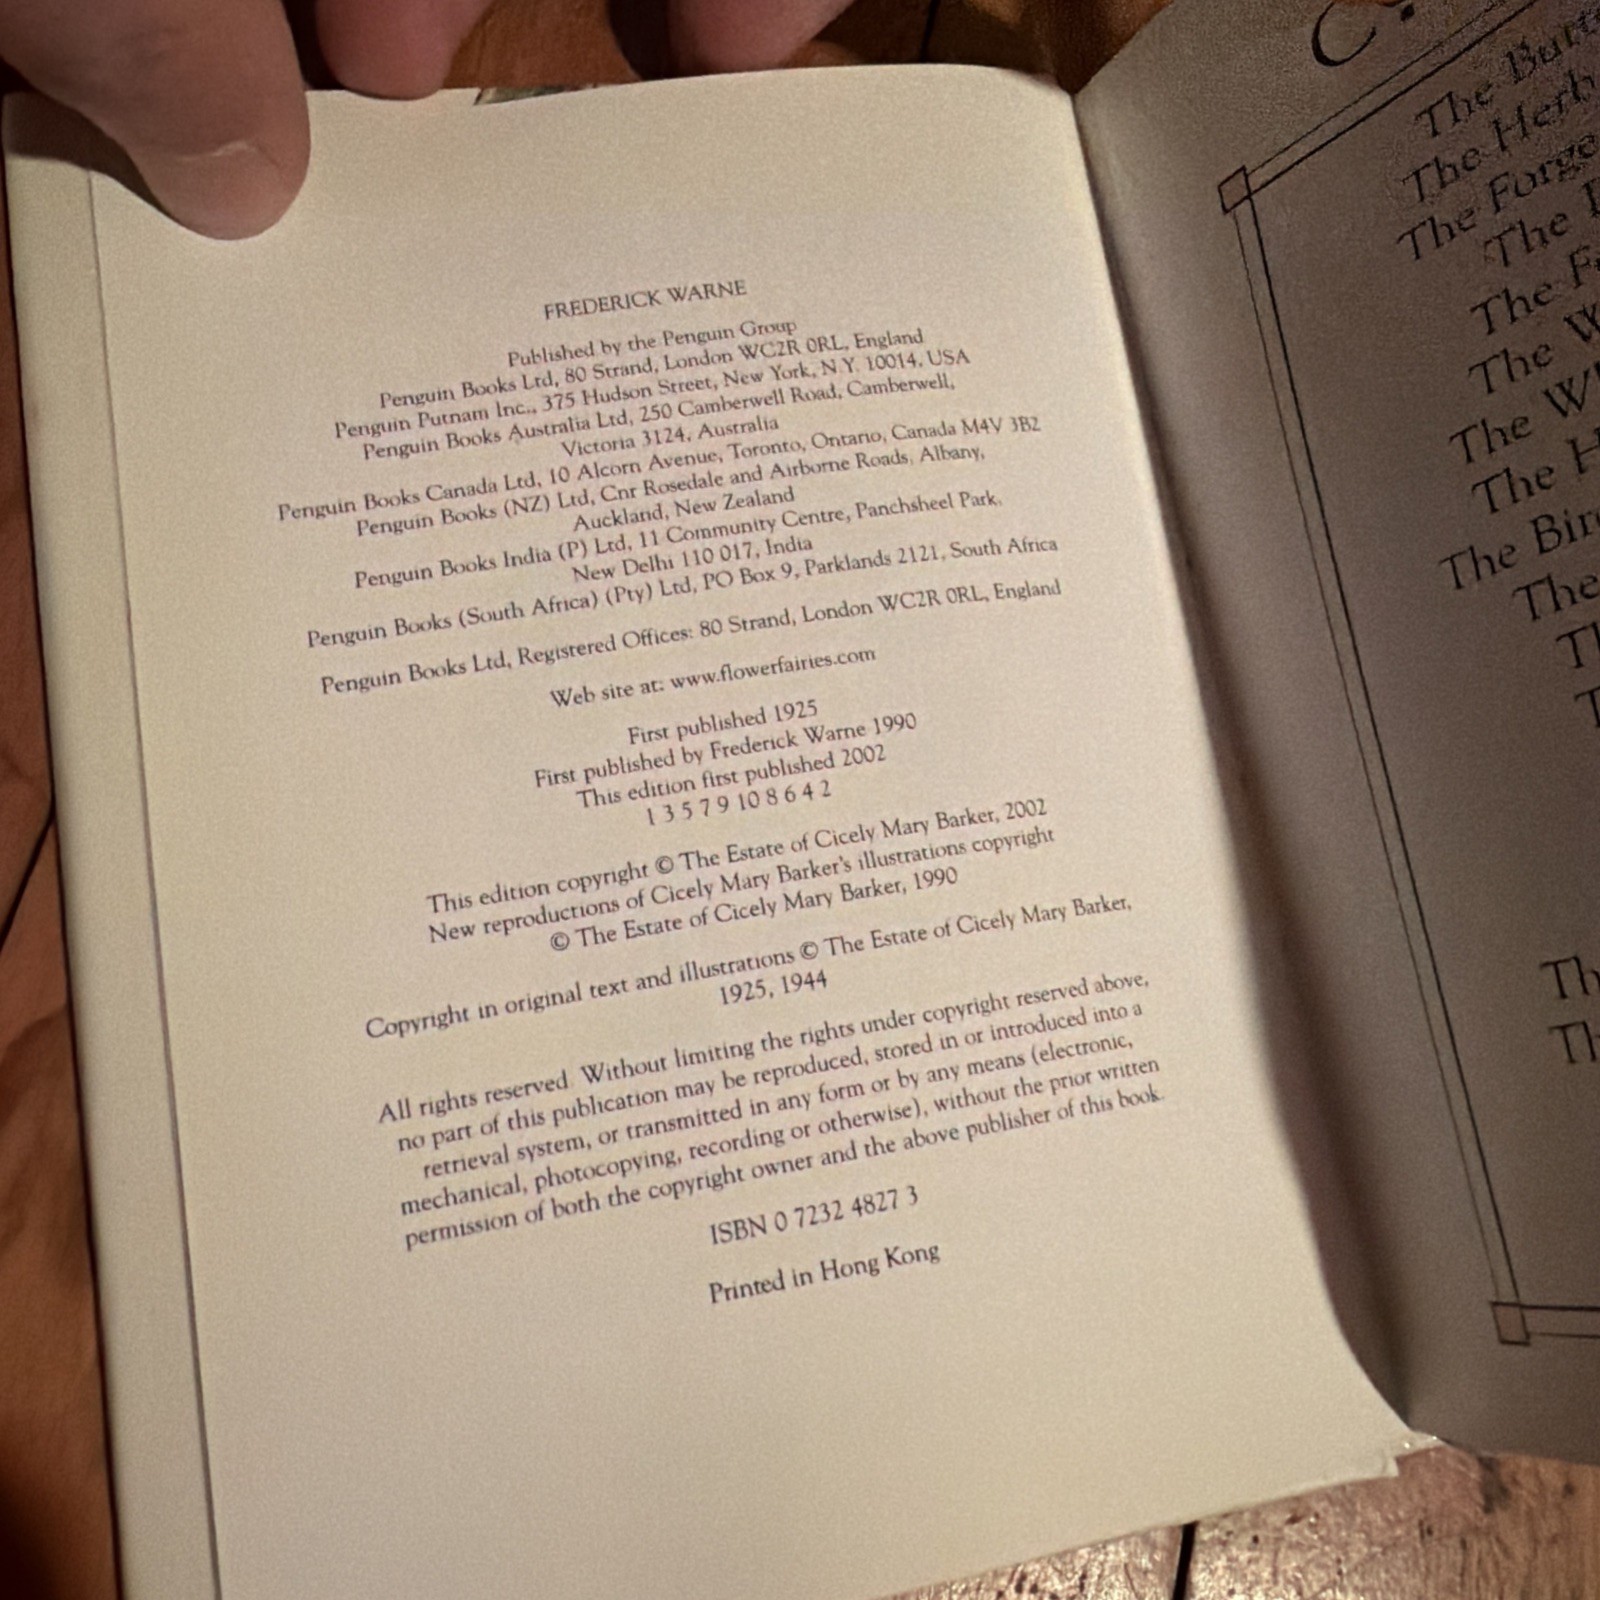 FREDERICK WARNE
Published by the Penguin Group
Penguin Books Ltd, 80 Strand, London WC2R 0RL, England
Penguin Putnam Inc., 375 Hudson Street, New York, N.Y. 10014, USA
Penguin Books Australia Ltd, 250 Camberwell Road, Camberwell,
Victoria 3124, Australia
Penguin Books Canada Ltd, 10 Alcorn Avenue, Toronto, Ontario, Canada M4V 3B2
Penguin Books (NZ) Ltd, Cnr Rosedale and Airborne Roads, Albany,
Auckland, New Zealand
Penguin Books India (P) Ltd, 11 Community Centre, Panchsheel Park,
New Delhi 110 017, India
Penguin Books (South Africa) (Pty) Ltd, PO Box 9, Parklands 2121, South Africa
Penguin Books Ltd, Registered Offices: 80 Strand, London WC2R 0RL, England
Web site at: www.flowerfairies.com
First published 1925
First published by Frederick Warne 1990
This edition first published 2002
1 3 5 7 9 10 8 6 4 2
This edition copyright © The Estate of Cicely Mary Barker, 2002
New reproductions of Cicely Mary Barker's illustrations copyright
© The Estate of Cicely Mary Barker, 1990
Copyright in original text and illustrations © The Estate of Cicely Mary Barker,
1925, 1944
All rights reserved. Without limiting the rights under copyright reserved above,
no part of this publication may be reproduced, stored in or introduced into a
retrieval system, or transmitted in any form or by any means (electronic,
mechanical, photocopying, recording or otherwise), without the prior written
permission of both the copyright owner and the above publisher of this book.
ISBN 0 7232 4827 3
Printed in Hong Kong
The
The Herb
The
The
The
The
The
The
The
The